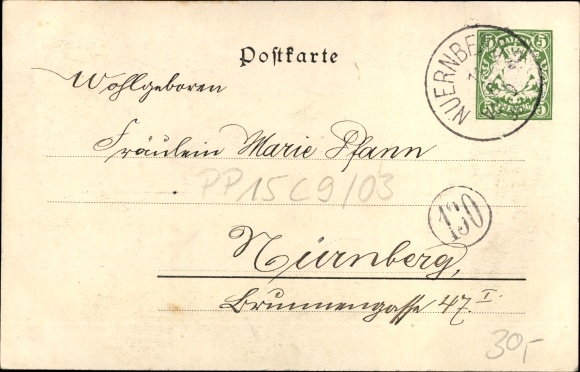 Postkarte
NUERNBERG
5 5
5 5
Wohlgeboren
Fräulein Marie Pfann
PP15C9/03
130
Nürnberg,
Brunnengasse 47 I.
30,-